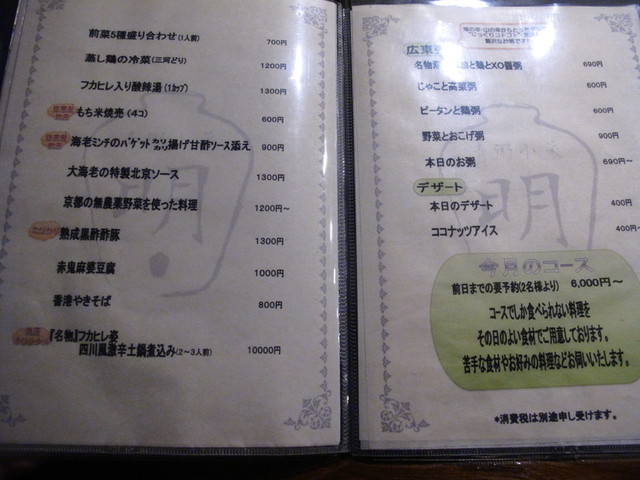 前菜5種盛り合わせ(1人前) 700円
蒸し鶏の冷菜(三河どり) 1200円
フカヒレ入り酸辣湯(1カップ) 1300円
もち米焼売(4コ) 600円
海老ミンチのバゲットカリカリ揚げ甘酢ソース添え 900円
大海老の特製北京ソース 1300円
京都の無農薬野菜を使った料理 1200円～
熟成黒酢酢豚 1300円
赤鬼麻婆豆腐 1000円
香港やきそば 800円
『名物』フカヒレ姿
四川風激辛土鍋煮込み(2～3人前) 10000円
明
広東
名物 と鶏とXO醤粥 690円
じゃこと高菜粥 600円
ピータンと鶏粥 600円
野菜とおこげ粥 900円
本日のお粥 690円～
デザート
本日のデザート 400円
ココナッツアイス 400円
明
今月のコース
前日までの要予約(2名様より) 6,000円～
コースでしか食べられない料理を
その日のよい食材でご用意しております。
苦手な食材やお好みの料理などお伺いいたします。
*消費税は別途申し受けます。